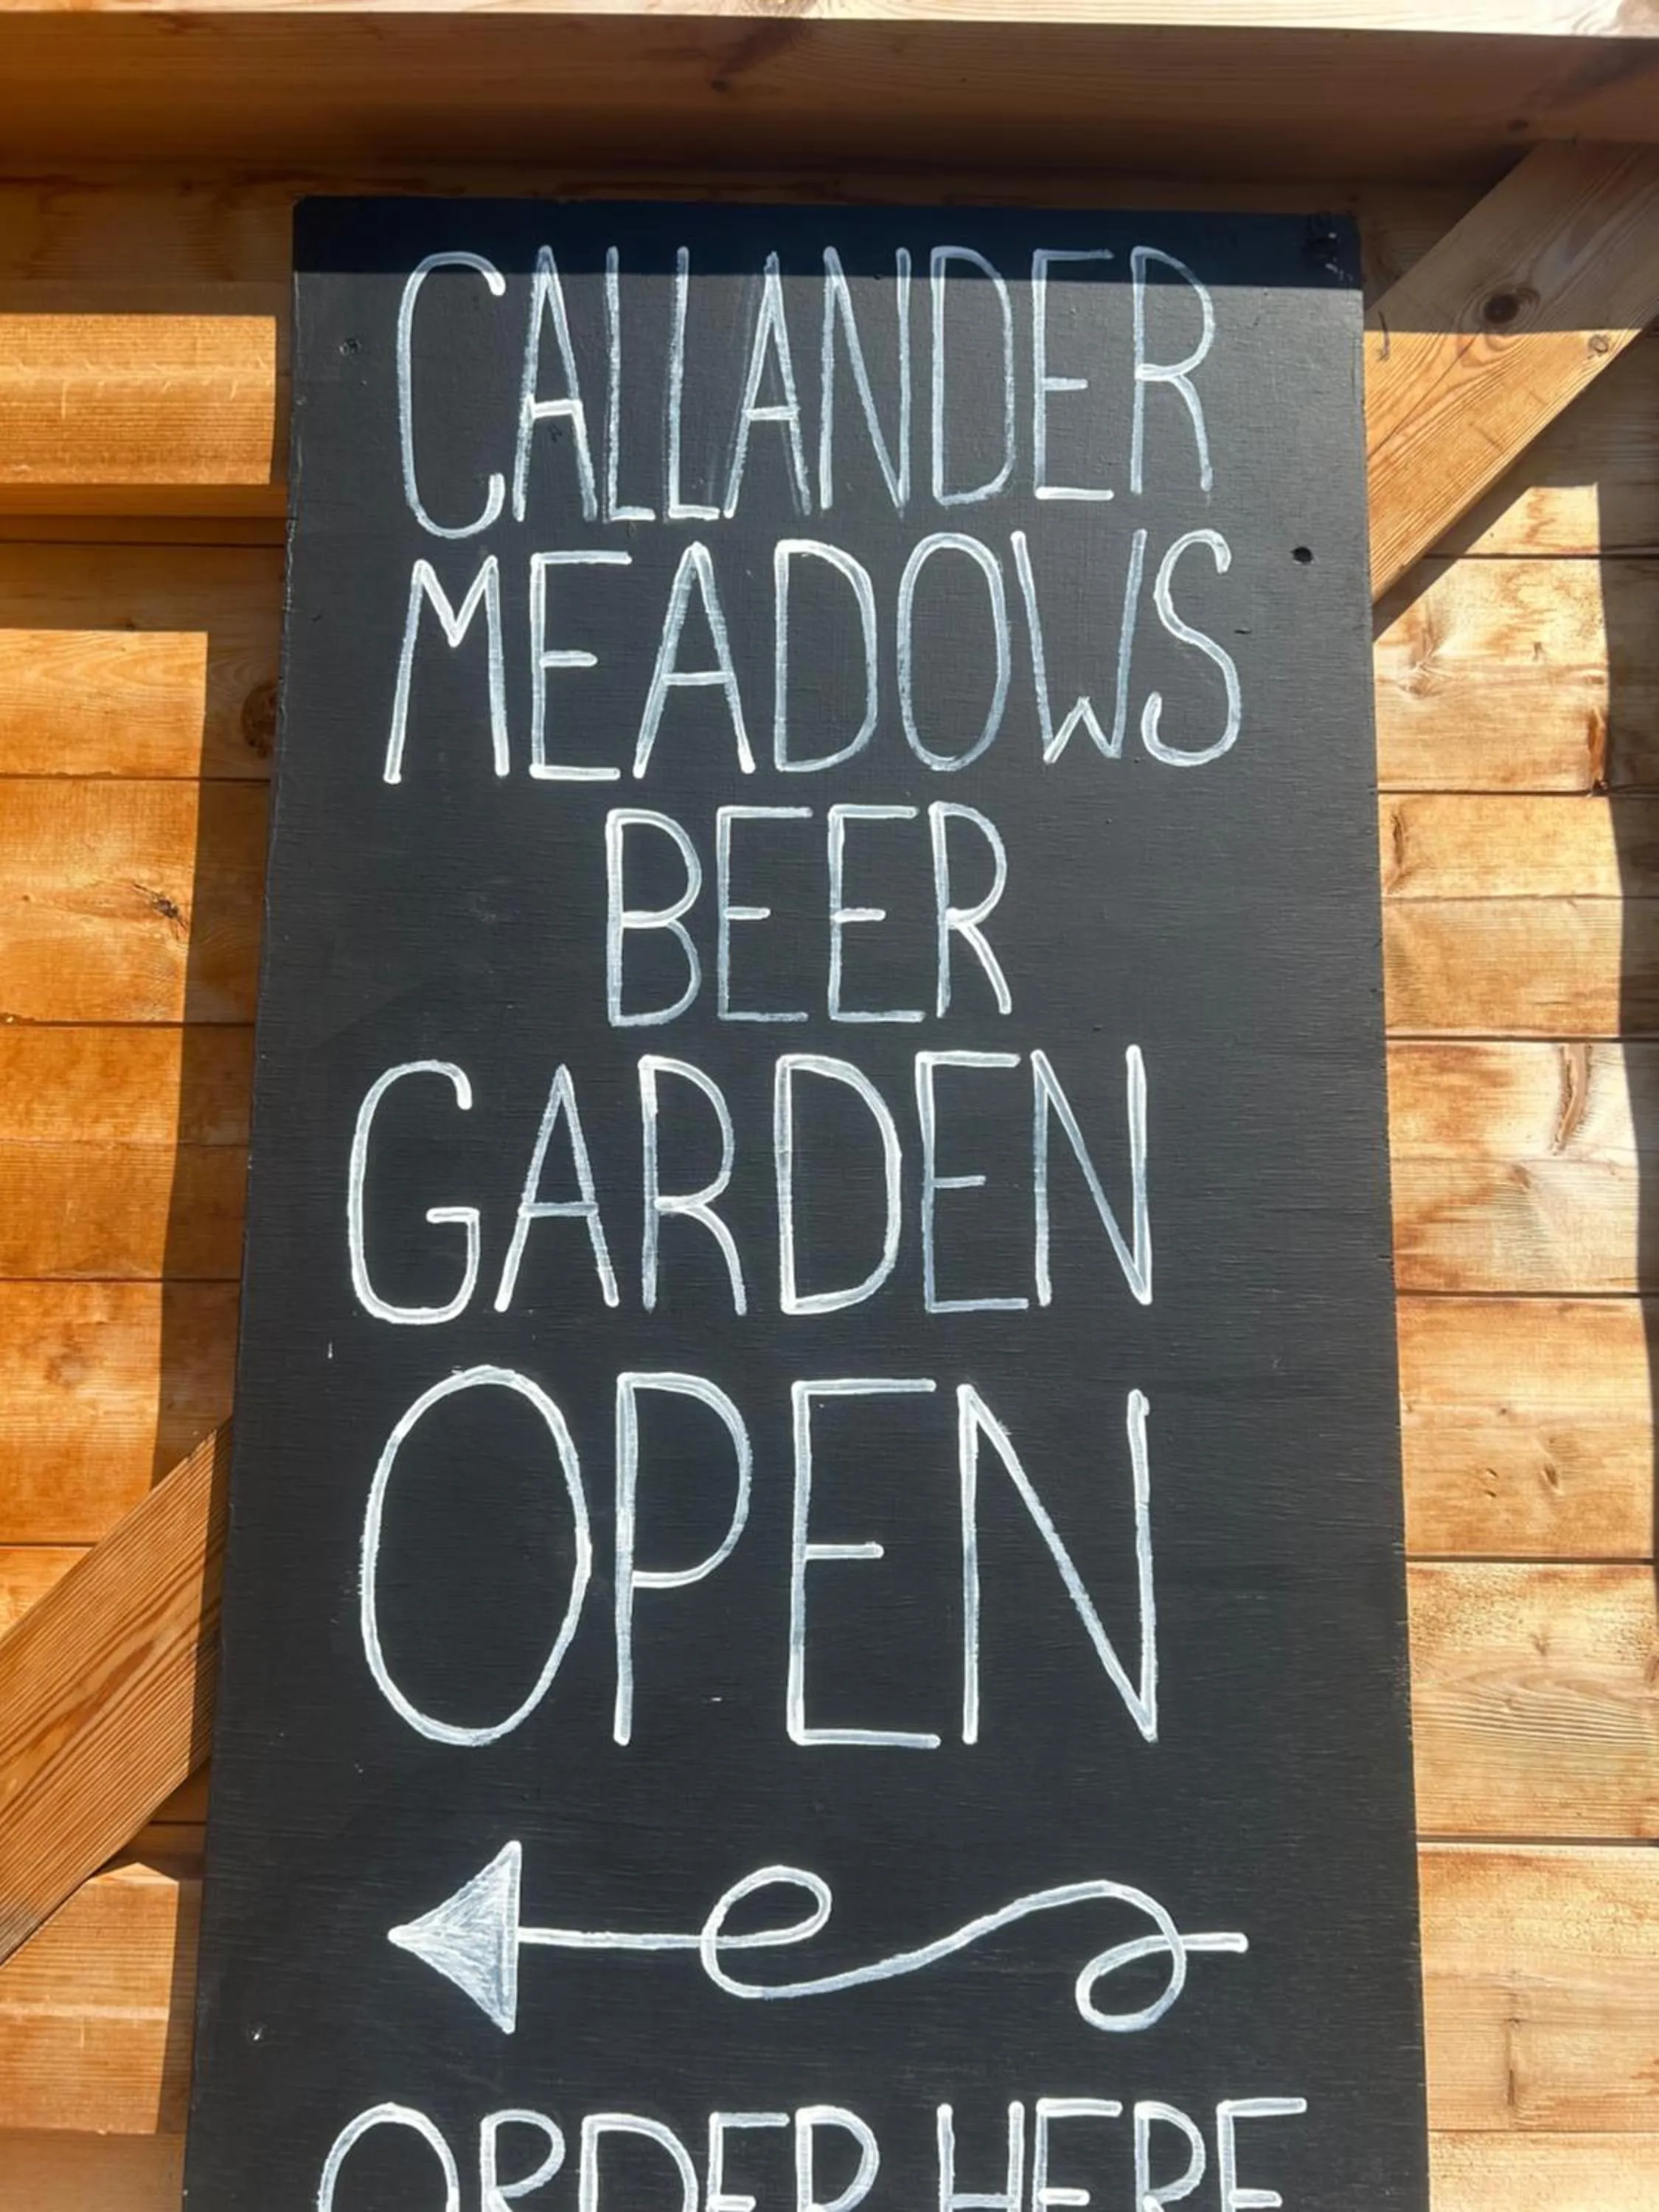 CALLANDER
MEADOWS
BEER
GARDEN
OPEN
ORDER HERE